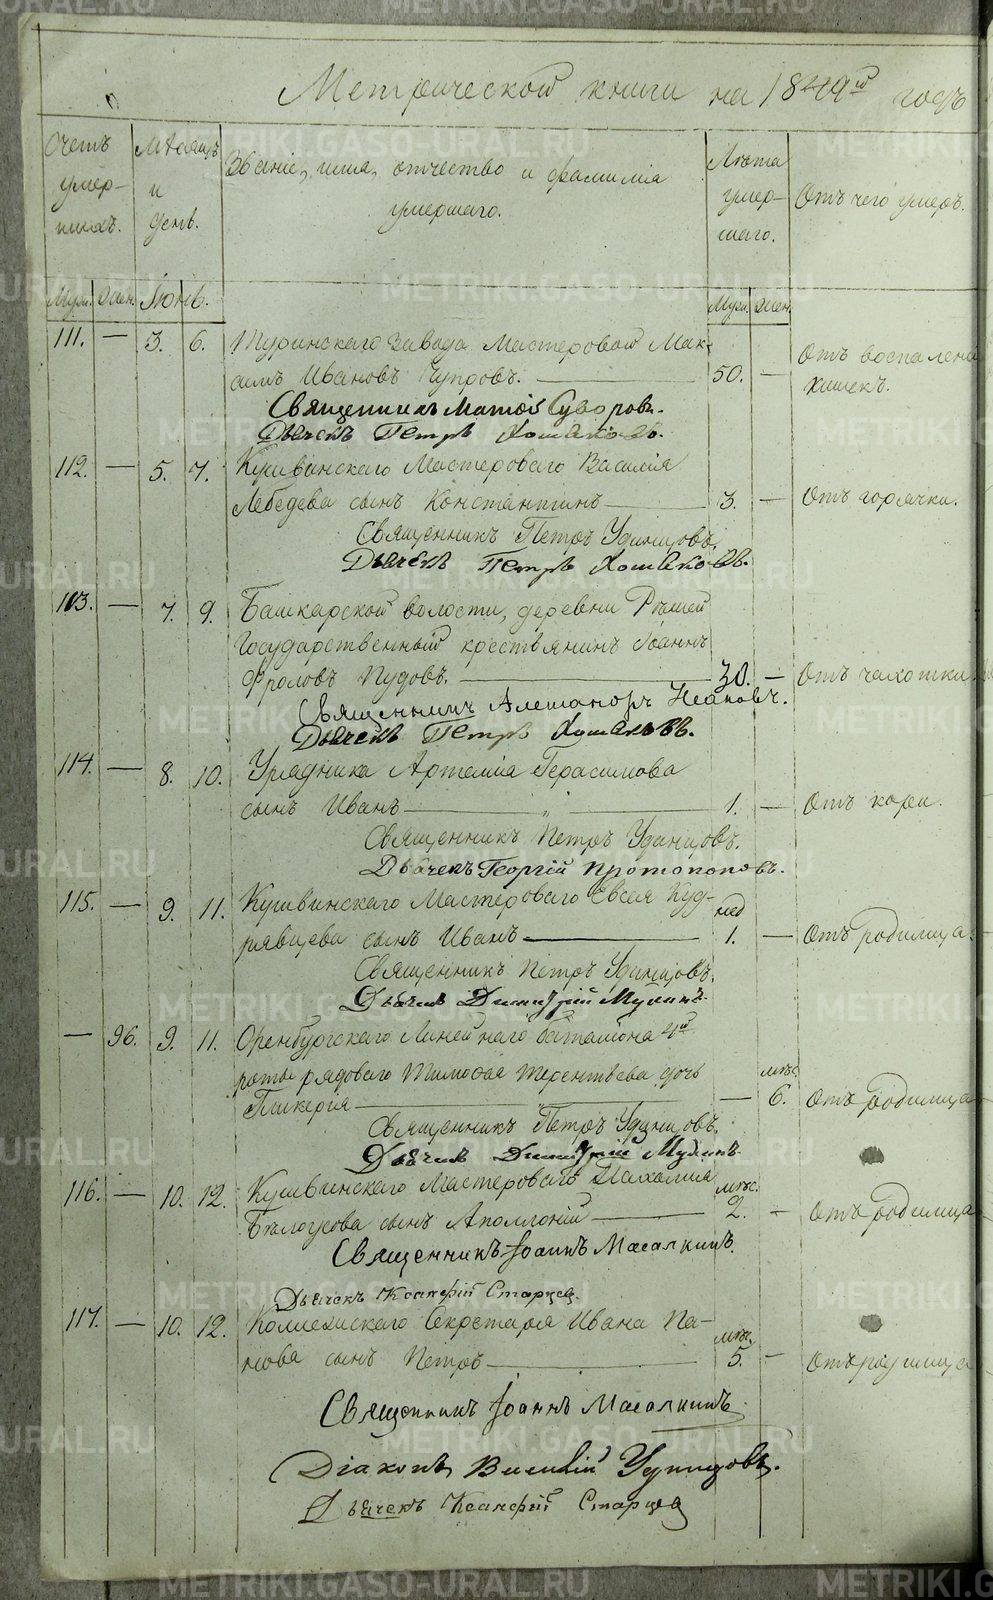 Метрической книги на 1849й годъ
Счетъ умер- шихъ.
Мѣсяцъ и день.
Званіе, имя, отчество и фамилія умершаго.
Лѣта умер- шаго.
Отъ чего умеръ.
Муж. Жен. Іюнь. Муж. Жен.
111. — 3. 6. Туринскаго завода Мастеровой Мак-
симъ Ивановъ Чупровъ. — 50. — Отъ воспаленія
кишекъ.
Священникъ Матѳій Суворовъ.
Дьячекъ Петръ Хомяковъ.
112. — 5. 7. Кушвинскаго Мастероваго Василія
Лебедева сынъ Константинъ — 3. — Отъ горячки.
Священникъ Петръ Удинцовъ.
Дьячекъ Петръ Хомяковъ.
113. — 7. 9. Башкарской волости, деревни
Государственный крестьянинъ Іоаннъ
Фроловъ Пудовъ. — 30. — Отъ чахотки
Священникъ Александръ
Дьячекъ Петръ Хомяковъ.
114. — 8. 10. Урядника Артемія Герасимова
сынъ Иванъ — „ — 1. — Отъ кори.
Священникъ Петръ Удинцовъ.
Дьячекъ Георгій Протопоповъ.
115. — 9. 11. Кушвинскаго Мастероваго Евсея Куд-
рявцева сынъ Иванъ — нед 1. — Отъ родимца.
Священникъ Петръ Удинцовъ.
Дьячекъ Димитрій Мухинъ.
— 96. 9. 11. Оренбургскаго Линейнаго баталіона 4й
роты рядоваго Тимоѳея Терентьева дочь
Гликерія — — мѣс. 6. Отъ родимца
Священникъ Петръ Удинцовъ.
Дьячекъ Димитрій Мухинъ.
116. — 10. 12. Кушвинскаго Мастероваго Пахомія
Бѣлоусова сынъ Аполлоній — мѣс. 2. — Отъ родимца
Священникъ Іоаннъ Масалкинъ.
Дьячекъ Ксанфій Старцев.
117. — 10. 12. Коллежскаго Секретаря Ивана Па-
нова сынъ Петръ — мѣс. 5. — Отъ родимца
Священникъ Іоаннъ Масалкинъ.
Діаконъ Василій Удинцовъ.
Дьячекъ Ксанфій Старцев
METRIKI.GASO-URAL.RU